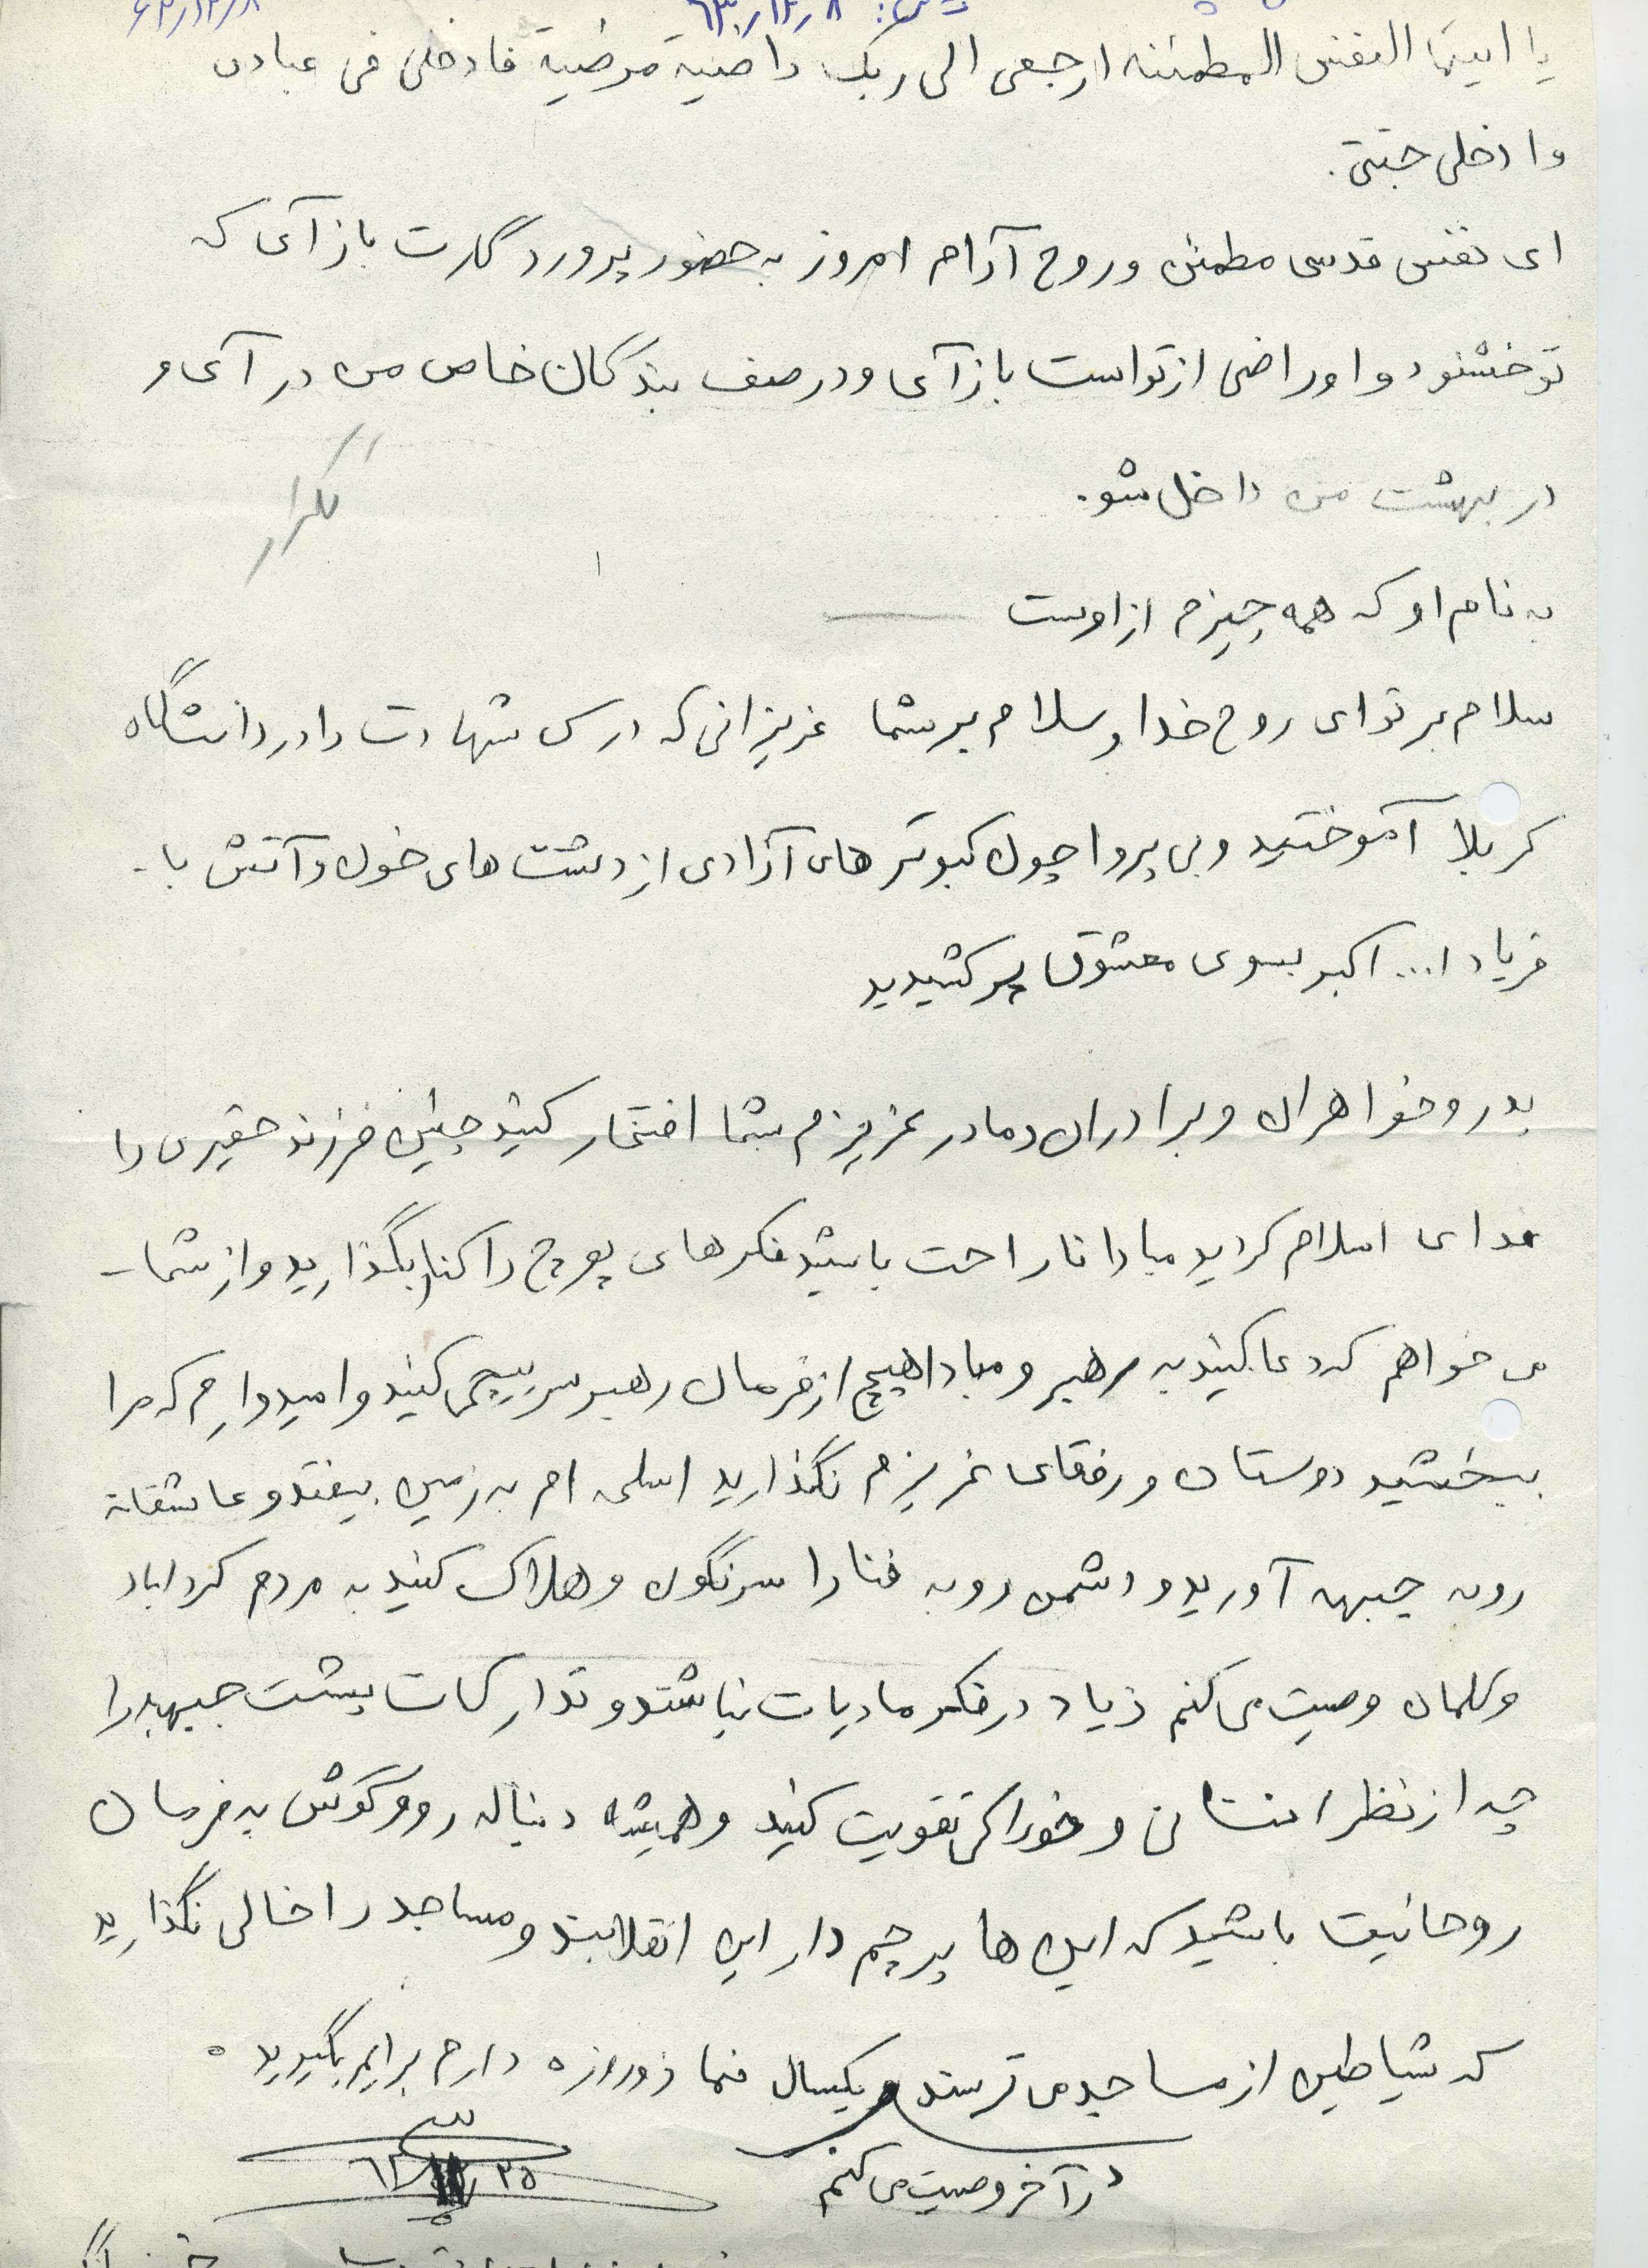 ۶۳/۱۲/۸
یا ایتها النفس المطمئنه ارجعی الی ربک راضیة مرضیة فادخلی فی عبادی
وادخلی جنتی.
ای نفس قدسی مطمئن و روح آرام امروز به حضور پروردگارت بازآی که
تو خشنود و او راضی از تو است بازآی و در صف بندگان خاص من در آی و
در بهشت من داخل شو.
تکرار
به نام او که همه چیزم از اوست
سلام بر تو ای روح خدا و سلام بر شما عزیزانی که درس شهادت را در دانشگاه
کربلا آموختید و بی پروا چون کبوترهای آزادی از دشت های خون و آتش با -
فریاد ا... اکبر بسوی معشوق پر کشیدید
پدر و خواهران و برادران و مادر عزیزم شما افتخار کنید چنین فرزند حقیری را
فدای اسلام کردید مبادا ناراحت باشید فکرهای پوچ را کنار بگذارید و از شما -
می خواهم که دعا کنید به رهبر و مبادا هیچ از فرمان رهبر سرپیچی کنید و امیدوارم که مرا
ببخشید دوستان و رفقای عزیزم نگذارید اسلحه ام به زمین بیفتد و عاشقانه
رو به جبهه آورید و دشمن رو به فنا را سرنگون و هلاک کنید به مردم کرداباد
وکلمان وصیت می کنم زیاد در فکر مادیات نباشند و تدارکات پشت جبهه را
چه از نظر انسانی و خوراکی تقویت کنید و همیشه دنباله رو و گوش به فرمان
روحانیت باشید که این ها پرچم دار این انقلابند و مساجد را خالی نگذارید
که شیاطین از مساجد می ترسند و یکسال نماز و روزه دارم برایم بگیرید.
در آخر وصیت می کنم